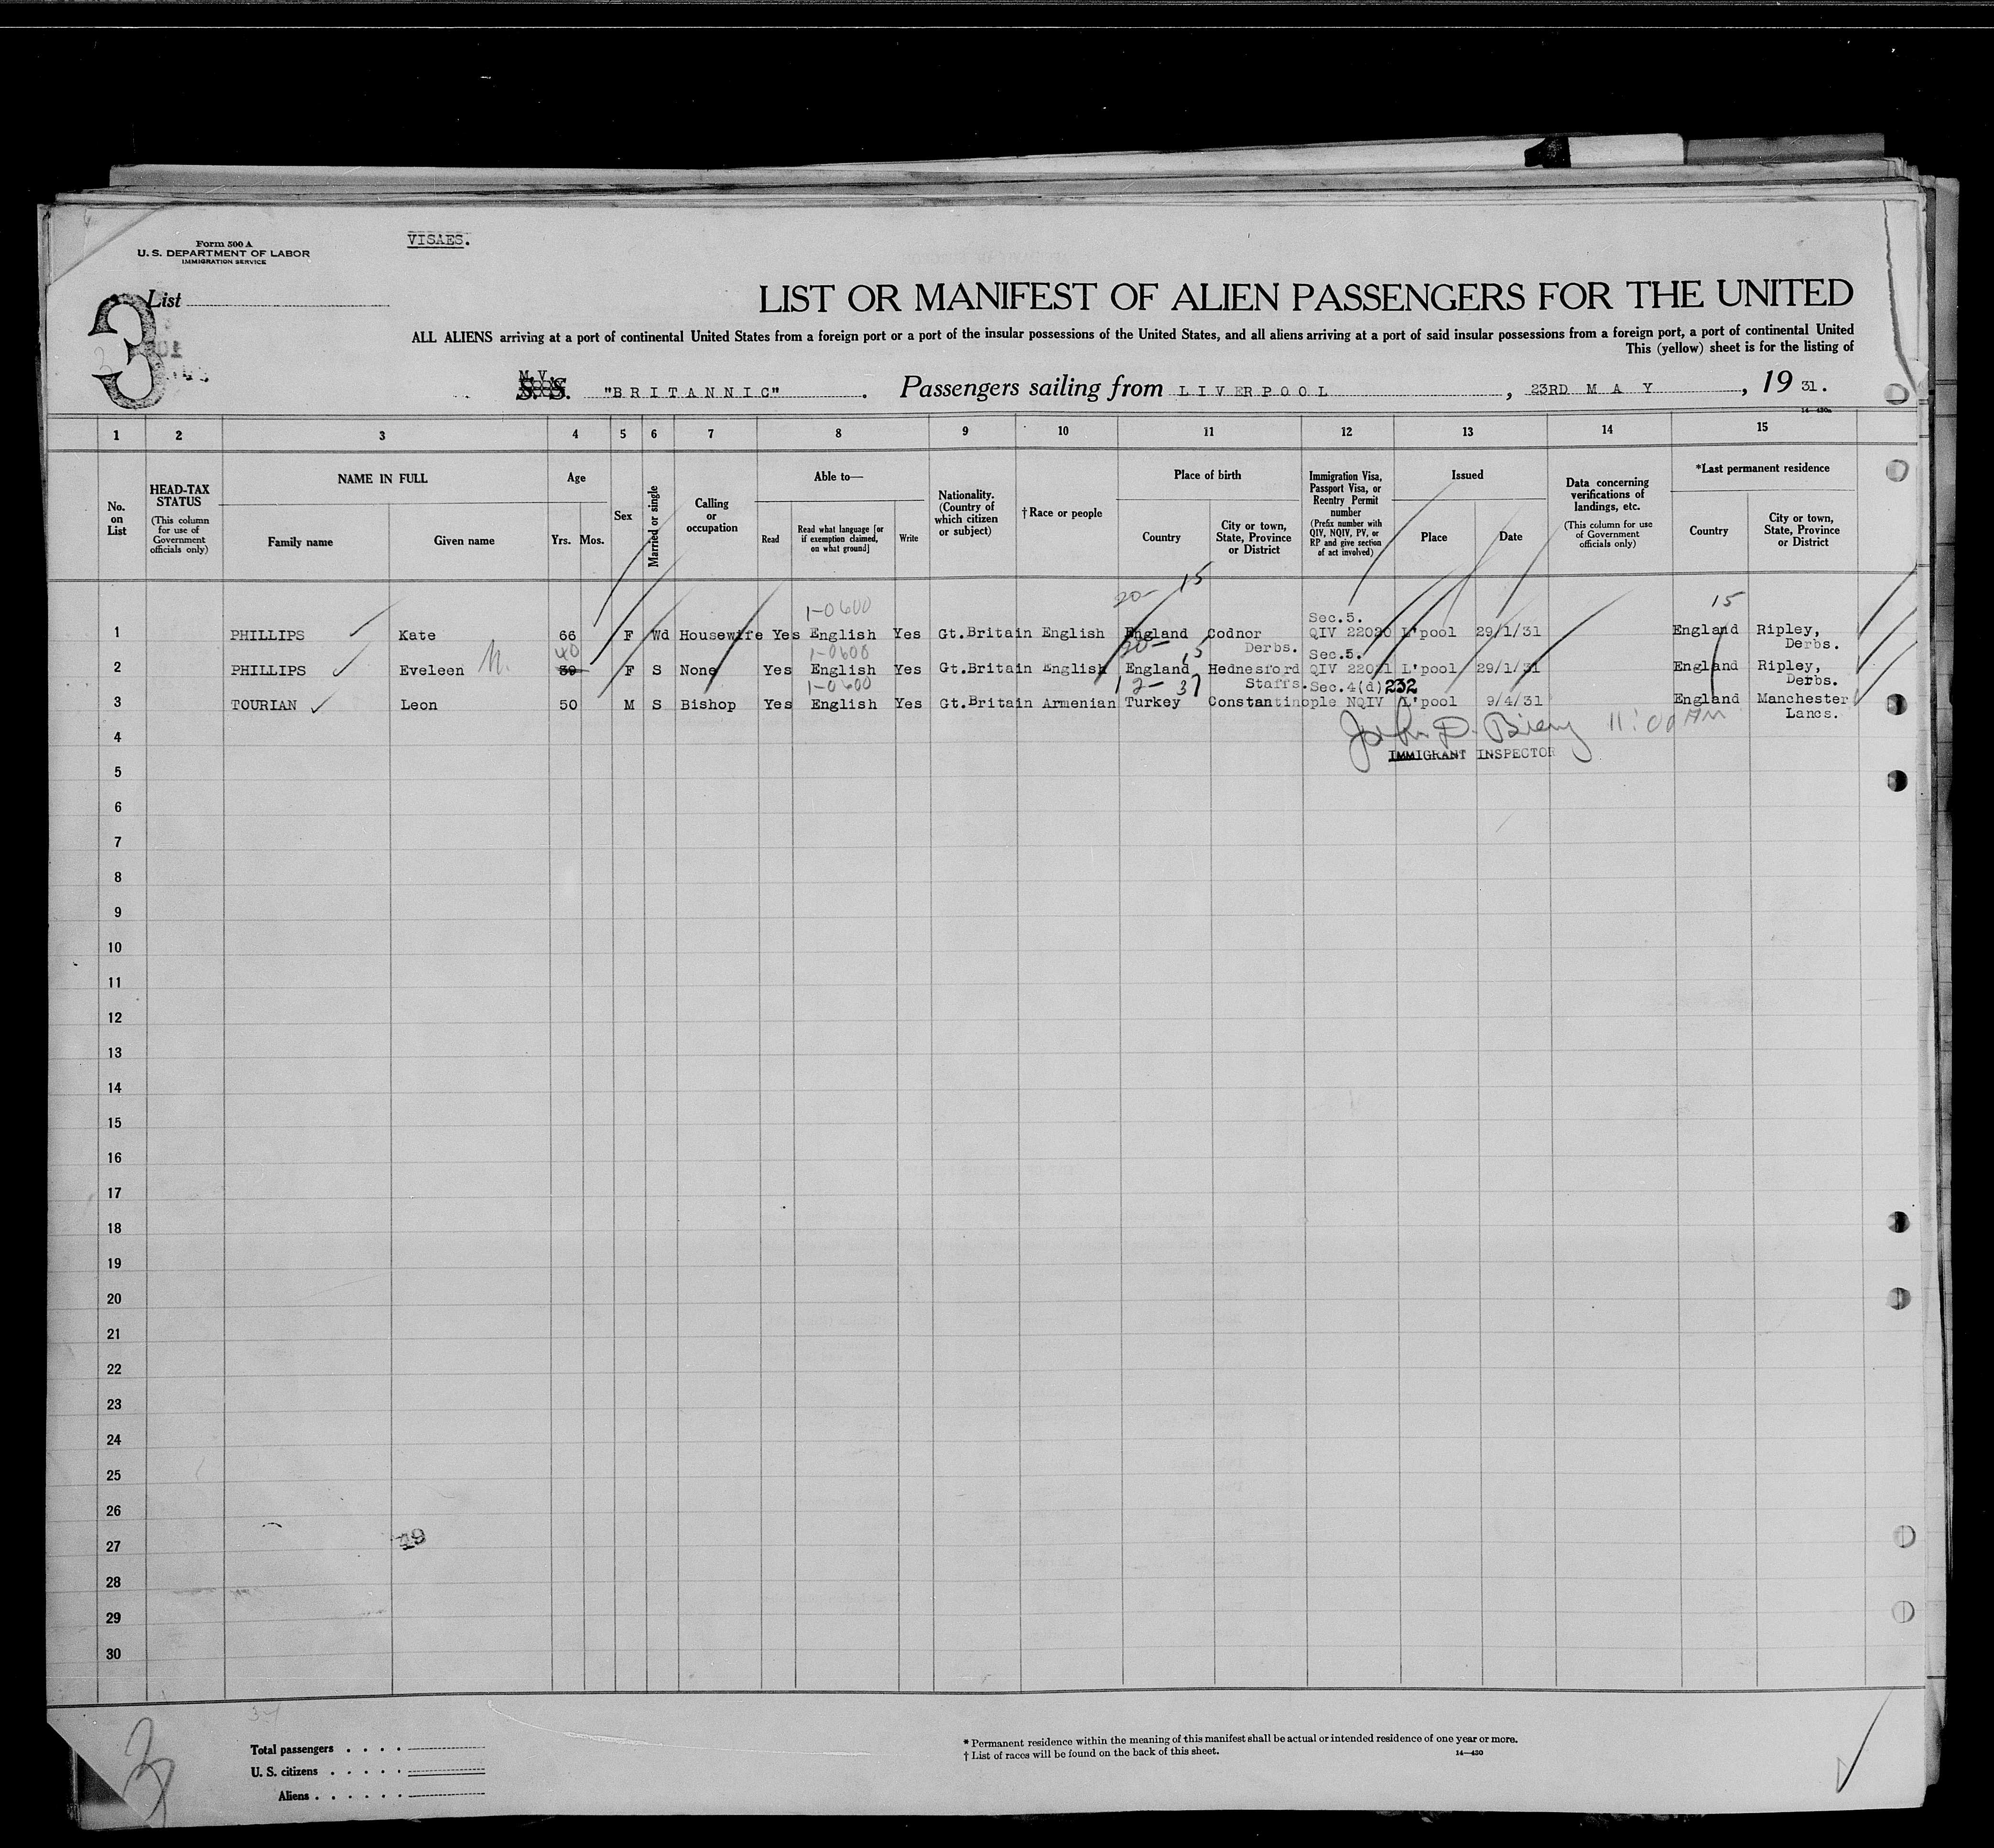 Form 500 A
U. S. DEPARTMENT OF LABOR
IMMIGRATION SERVICE
VISAES.
List
3
LIST OR MANIFEST OF ALIEN PASSENGERS FOR THE UNITED
ALL ALIENS arriving at a port of continental United States from a foreign port or a port of the insular possessions of the United States, and all aliens arriving at a port of said insular possessions from a foreign port, a port of continental United
This (yellow) sheet is for the listing of
M.V.
S. S. "BRITANNIC" . Passengers sailing from LIVERPOOL , 23RD MAY , 19 31.
14-430a
1 2 3 4 5 6 7 8 9 10 11 12 13 14 15
No. on List
HEAD-TAX STATUS
(This column for use of Government officials only)
NAME IN FULL
Family name Given name
Age
Yrs. Mos.
Sex
Married or single
Calling or occupation
Able to—
Read
Read what language [or if exemption claimed, on what ground]
Write
Nationality. (Country of which citizen or subject)
†Race or people
Place of birth
Country
City or town, State, Province or District
Immigration Visa, Passport Visa, or Reentry Permit number
(Prefix number with QIV, NQIV, PV, or RP and give section of act involved)
Issued
Place Date
Data concerning verifications of landings, etc.
(This column for use of Government officials only)
*Last permanent residence
Country
City or town, State, Province or District
20- 15 15
1-0600 Sec.5.
1 PHILLIPS Kate 66 F Wd Housewife Yes English Yes Gt.Britain English England Codnor Derbs. QIV 22020 L'pool 29/1/31 England Ripley, Derbs.
40 1-0600 20- 15 Sec.5.
2 PHILLIPS Eveleen M. 39 F S None Yes English Yes Gt.Britain English England Hednesford Staffs. QIV 22021 L'pool 29/1/31 England Ripley, Derbs.
1-0600 12- 37 Sec.4(d) 232
3 TOURIAN Leon 50 M S Bishop Yes English Yes Gt.Britain Armenian Turkey Constantinople NQIV L'pool 9/4/31 England Manchester Lancs.
4
John D. 11:00 AM
IMMIGRANT INSPECTOR
5
6
7
8
9
10
11
12
13
14
15
16
17
18
19
20
21
22
23
24
25
26
27
49
28
29
30
3
Total passengers . . . .
U. S. citizens . . . . .
Aliens . . . . . .
* Permanent residence within the meaning of this manifest shall be actual or intended residence of one year or more.
† List of races will be found on the back of this sheet.
14-430